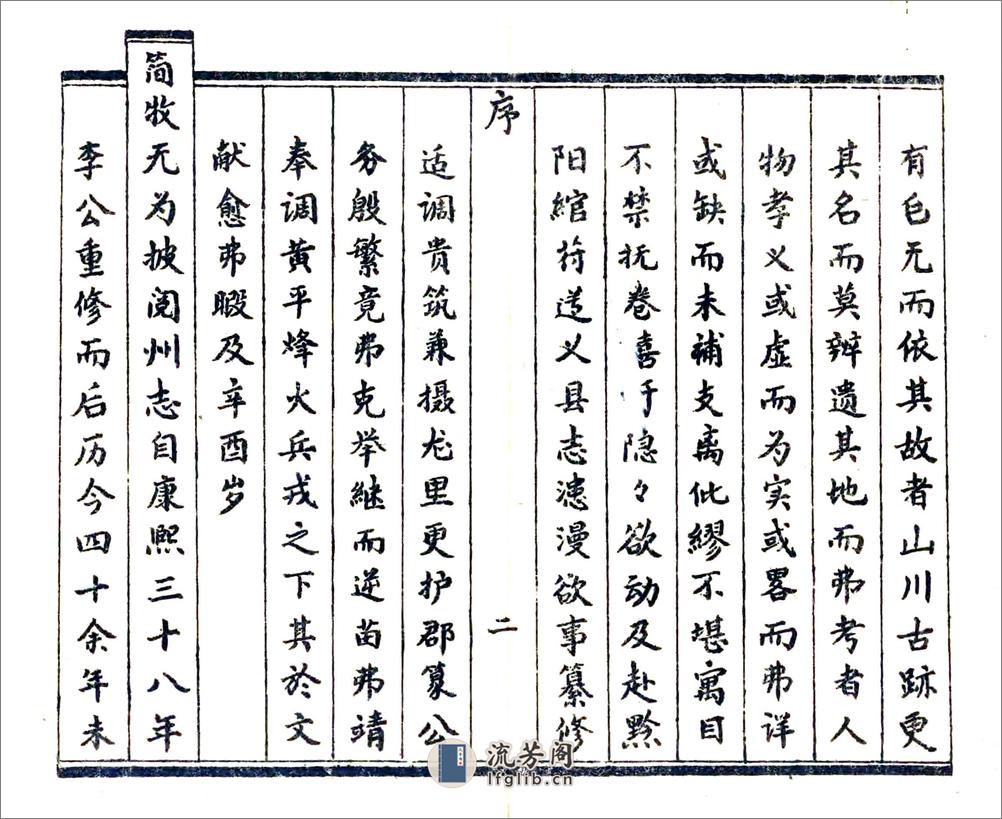 有已无而依其故者山川古跡更
其名而莫辨遗其地而弗考者人
物孝义或虚而为实或畧而弗详
或缺而未補支离仳繆不堪寓目
不禁抚卷喜于隐々欲动及赴黔
阳綰符遵义县志漶漫欲事纂修
序
二
适调贵筑兼摄龙里更护郡篆公
务殷繁竟弗克举继而逆苗弗靖
奉调黄平烽火兵戎之下其於文
献愈弗暇及辛酉岁
简牧无为披阅州志自康熙三十八年
李公重修而后历今四十余年未
流芳阁
lfglib.cn